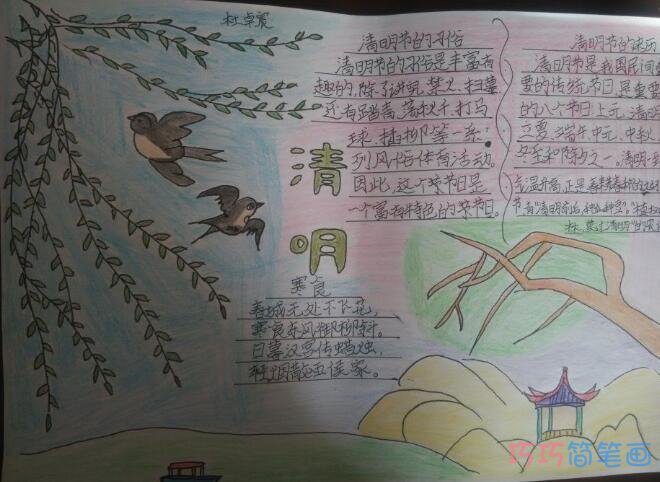 杜卓宸
清明节的习俗
清明节的习俗是丰富有
趣的,除了讲究禁火、扫墓
还有踏青、荡秋千、打马
球、插柳等一系
列风俗体育活动。
因此,这个节日是
一个富有特色的节日。
清明节的来历
清明节是我国民间重
要的传统节日,是重要
的八个节日上元、清明
立夏、端午、中元、中秋
冬至和除夕之一。清明
气温升高,正是春耕春种的
节,有"清明前后,种瓜种豆"。"植
清明
寒食
春城无处不飞花,
寒食东风御柳斜。
日暮汉宫传蜡烛,
轻烟散五侯家。
巧巧简笔画